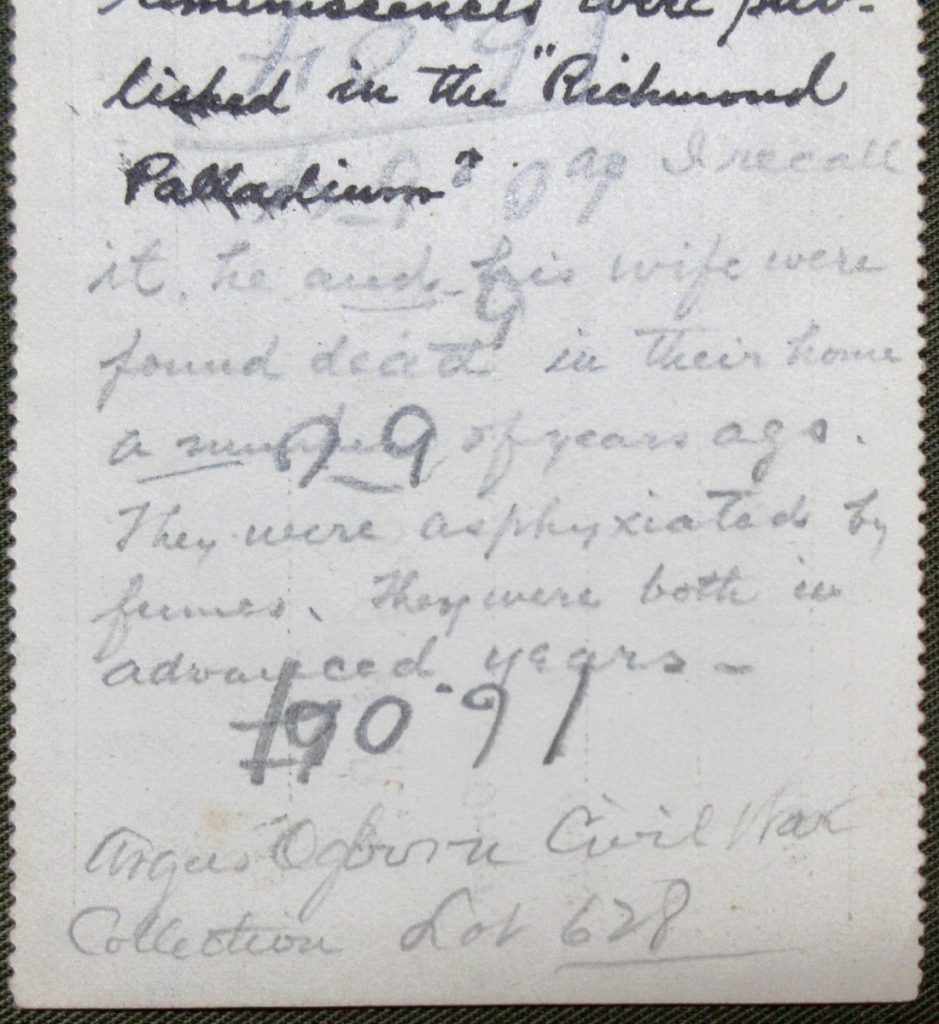 reminiscences were pub-
lished in the "Richmond
Palladium" as I recall
it, he and his wife were
found death in their home
a number of years ago.
They were asphyxiated by
fumes. They were both in
advanced years -
90-91
Argus Ogborn Civil War
Collection Lot 628